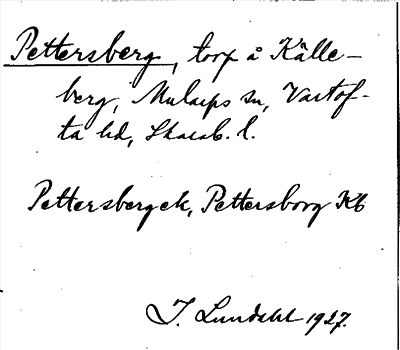 Pettersberg, torp å Källe-
berg, Mularps sn, Vartof-
ta hd, Skarab. l.
Pettersbergek, Pettersborg Kb
J. Lundahl 1927.